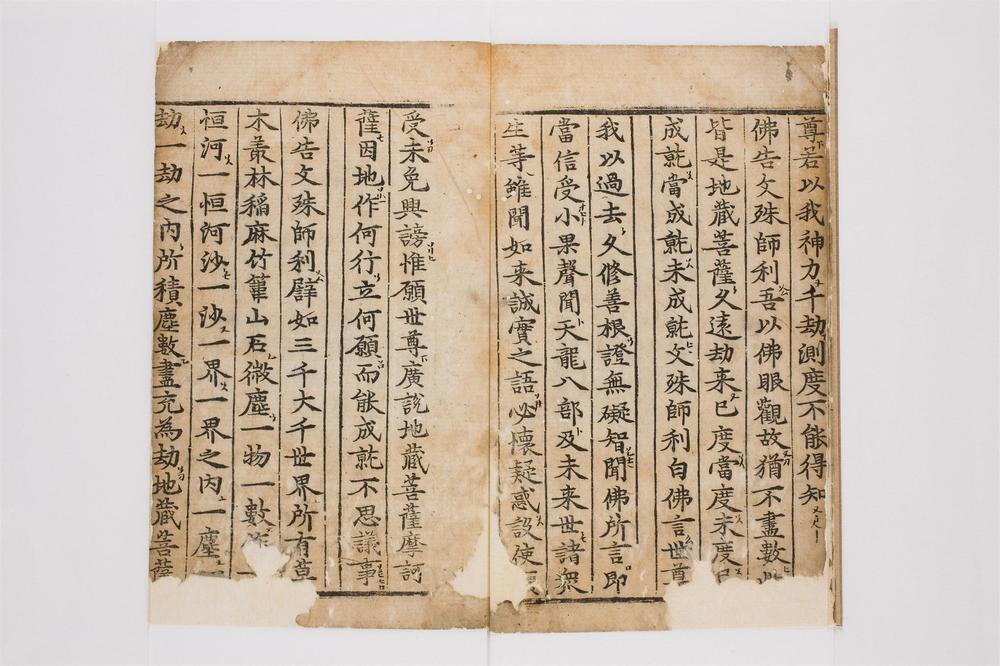 尊若以我神力千劫測度不能得知
佛告文殊師利吾以佛眼觀故猶不盡數
皆是地藏菩薩久遠劫来已度當度未度已
成就當成就未成就文殊師利白佛言世尊
我以過去久修善根證無礙智聞佛所言即
當信受小果聲聞天龍八部及未来世諸衆
生等雖聞如来誠實之語必懷疑惑設使
受未免興謗惟願世尊廣說地藏菩薩摩訶
薩因地作何行立何願而能成就不思議事
佛告文殊師利譬如三千大千世界所有草
木叢林稲麻竹葦山石微塵一物一數作
恒河一恒河沙一沙一界一界之内一塵一
劫一劫之内所積塵數盡充為劫地藏菩薩